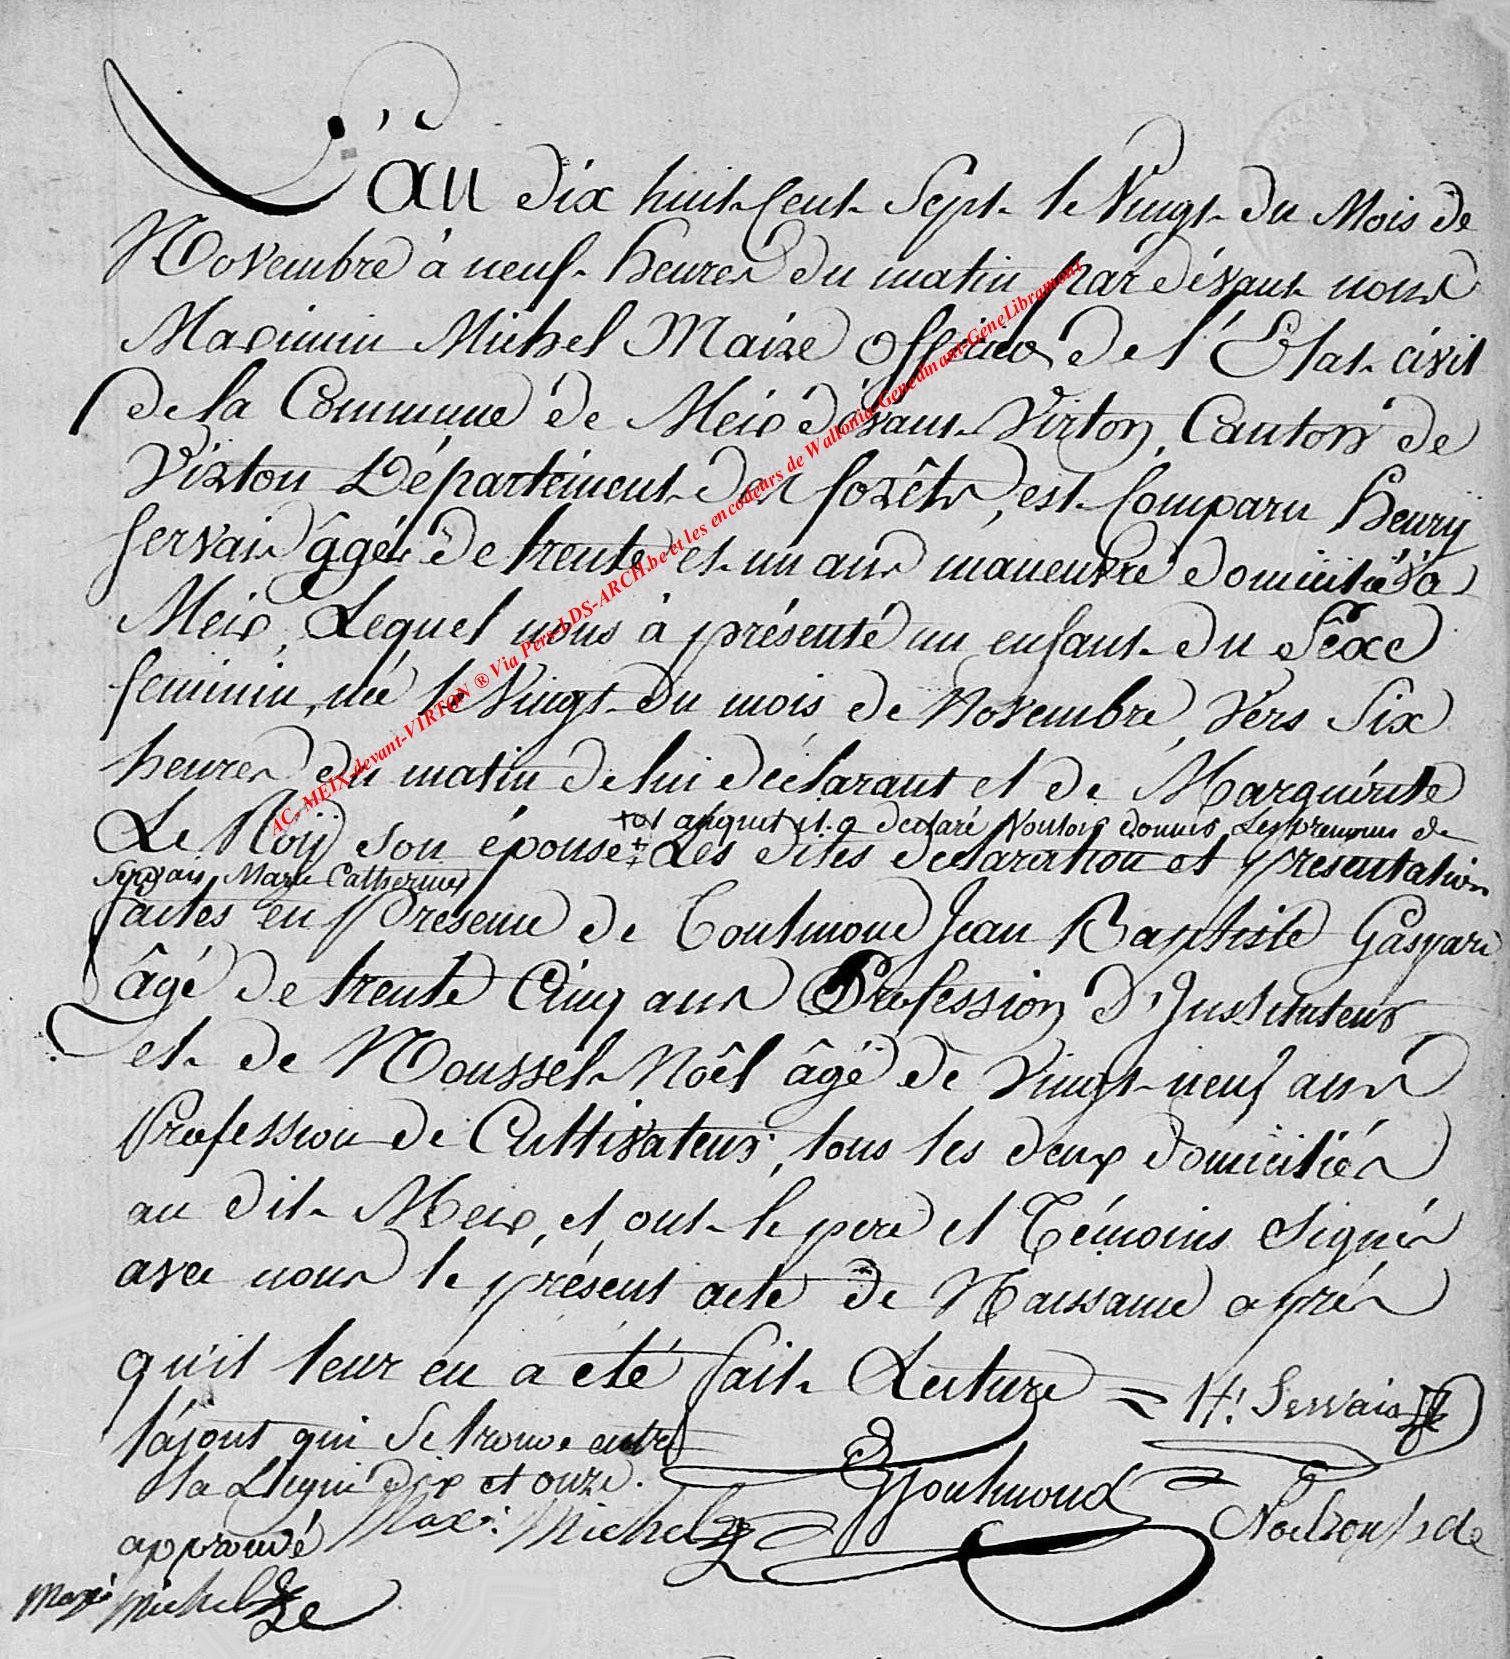 L'an dix huit Cent Sept le Vingt du Mois de
Novembre à neuf heures du matin par dévant nous
Maximin Michel Maire Officier de l'Etat civil
de la Commune de Meix dévant Virton, Canton de
Virton Département des forêts, est Comparu Henrÿ
Servais âgé de trente et un ans maneuvre domicilié à
Meix, Lequel nous à présenté un enfant du Séxe
feminin, né le Vingt du mois de Novembre, vers Six
heures du matin de lui déclarant et de Marguérite
Le Roÿ son épouse ‡ Les dites déclaration et présentation
auquel il a declaré Vouloir donner Les prenoms de
Servais Marie Catherine
faites en présence de Toutmond Jean Baptiste Gaspard
âgé de trente Cinq ans Profession d'Instituteur
et de Roussel Noêl âgé de Vingt neuf ans
Profession de Cultivateur, tous les deux domiciliés
au dit Meix, et ont le pere et Témoins signés
avec nous le présent acte de Naissance aprés
qu'il leur en a été fait Lecture = H. Servais
l'ajout qui se trouve entre
la Ligne dix et onze.
approuvé Max: Michel
Maxi Michel
AC. MEIX-devant-VIRTON ® Via Pers-LDS-ARCH.be et les encodeurs de Wallonia-Genedmant-GeneLibramont